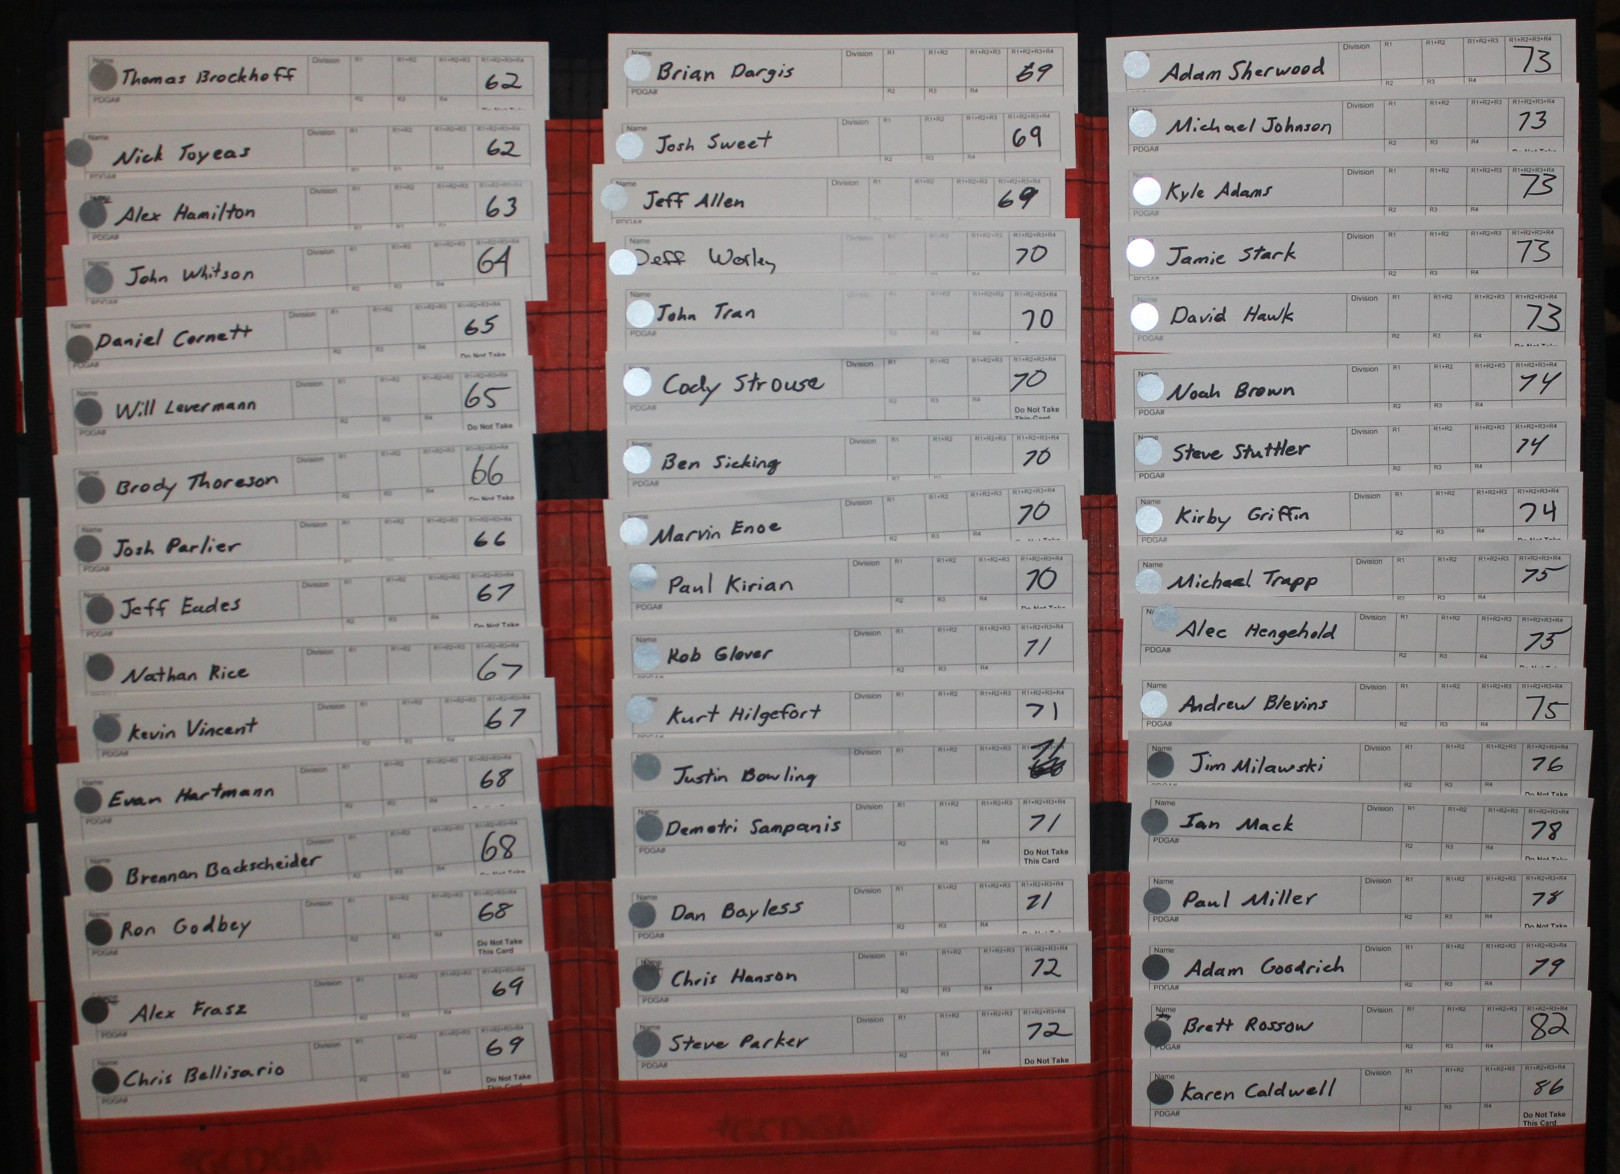 Thomas Brockhoff 62
Nick Toyeas 62
Alex Hamilton 63
John Whitson 64
Daniel Cornett 65
Will Levermann 65
Brody Thoreson 66
Josh Parlier 66
Jeff Eades 67
Nathan Rice 67
Kevin Vincent 67
Evan Hartmann 68
Brennan Backscheider 68
Ron Godbey 68
Do Not Take
This Card
Alex Frasz 69
Chris Bellisario 69
Do Not Take
Brian Dargis 69
Josh Sweet 69
Jeff Allen 69
Jeff Worley 70
John Tran 70
Cody Strouse 70
Do Not Take
This Card
Ben Sicking 70
Marvin Enoe 70
Paul Kirian 70
Rob Glover 71
Kurt Hilgefort 71
Justin Bowling 71
Demetri Sampanis 71
Do Not Take
This Card
Dan Bayless 71
Chris Hanson 72
Steve Parker 72
Do Not Take
Name Division R1 R1+R2 R1+R2+R3 R1+R2+R3+R4
Adam Sherwood 73
Michael Johnson 73
Kyle Adams 73
Jamie Stark 73
David Hawk 73
Noah Brown 74
Steve Stuttler 74
Kirby Griffin 74
Michael Trapp 75
Alec Hengehold 75
Andrew Blevins 75
Jim Milawski 76
Ian Mack 78
Paul Miller 78
Adam Goodrich 79
Brett Rossow 82
Karen Caldwell 86
PDGA# R2 R3 R4 Do Not Take
This Card